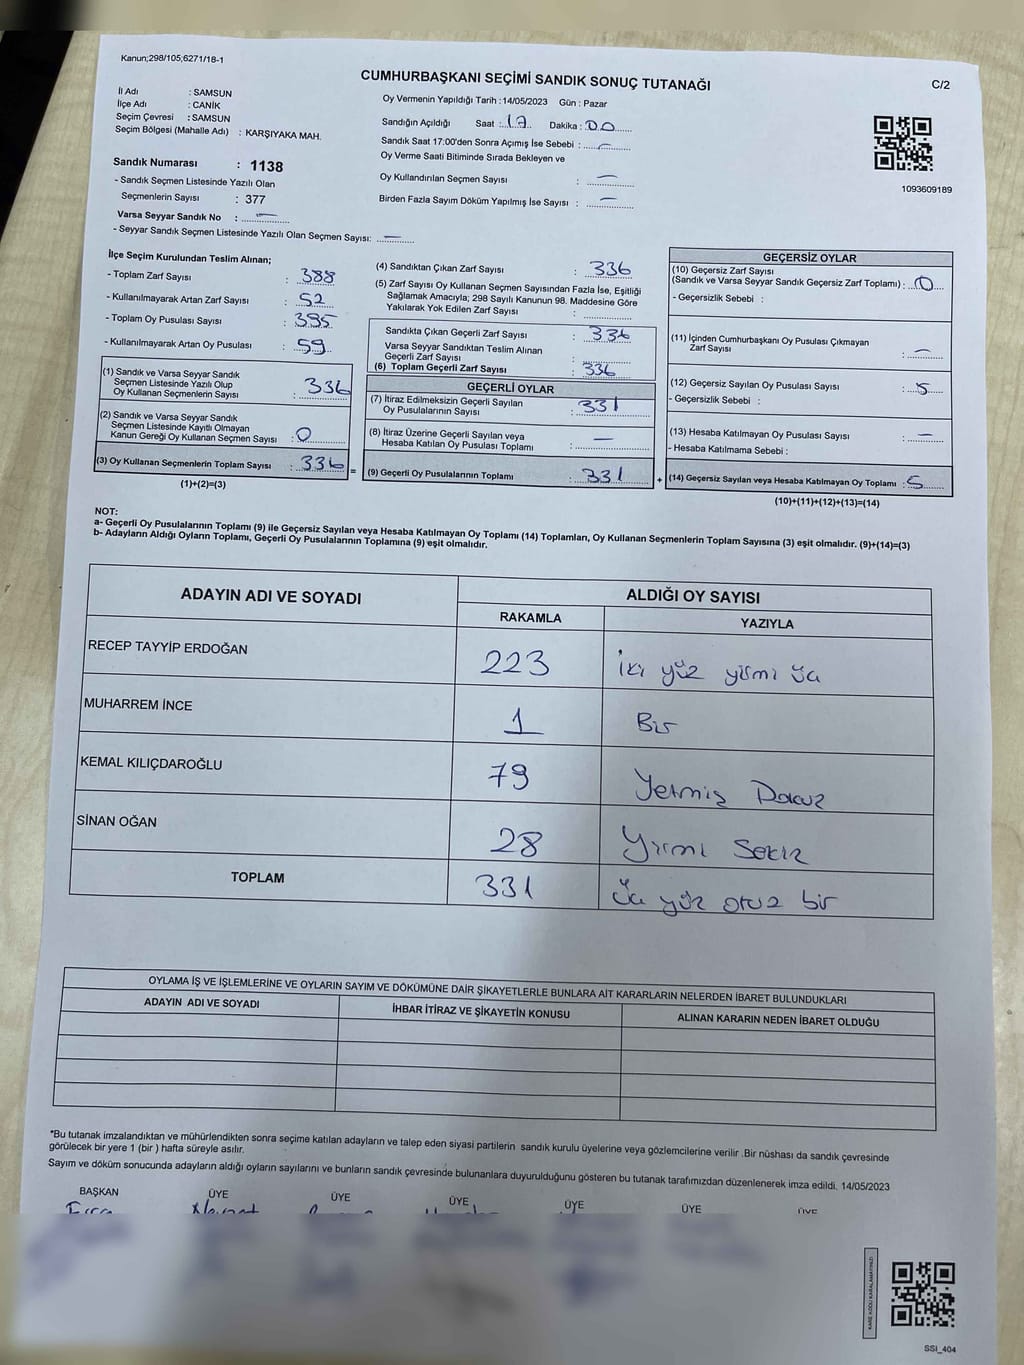 Kanun;298/105;6271/18-1
CUMHURBAŞKANI SEÇİMİ SANDIK SONUÇ TUTANAĞI
C/2
İl Adı : SAMSUN
İlçe Adı : CANİK
Seçim Çevresi : SAMSUN
Seçim Bölgesi (Mahalle Adı) : KARŞIYAKA MAH.
Sandık Numarası : 1138
- Sandık Seçmen Listesinde Yazılı Olan
Seçmenlerin Sayısı : 377
Varsa Seyyar Sandık No : —
- Seyyar Sandık Seçmen Listesinde Yazılı Olan Seçmen Sayısı: —
Oy Vermenin Yapıldığı Tarih : 14/05/2023 Gün : Pazar
Sandığın Açıldığı Saat : 17 Dakika : 00
Sandık Saat 17:00'den Sonra Açımış İse Sebebi : —
Oy Verme Saati Bitiminde Sırada Bekleyen ve
Oy Kullandırılan Seçmen Sayısı : —
Birden Fazla Sayım Döküm Yapılmış İse Sayısı : —
1093609189
İlçe Seçim Kurulundan Teslim Alınan;
- Toplam Zarf Sayısı : 388
- Kullanılmayarak Artan Zarf Sayısı : 52
- Toplam Oy Pusulası Sayısı : 395
- Kullanılmayarak Artan Oy Pusulası : 59
(1) Sandık ve Varsa Seyyar Sandık
Seçmen Listesinde Yazılı Olup
Oy Kullanan Seçmenlerin Sayısı : 336
(2) Sandık ve Varsa Seyyar Sandık
Seçmen Listesinde Kayıtlı Olmayan
Kanun Gereği Oy Kullanan Seçmen Sayısı : 0
(3) Oy Kullanan Seçmenlerin Toplam Sayısı : 336 =
(1)+(2)=(3)
(4) Sandıktan Çıkan Zarf Sayısı : 336
(5) Zarf Sayısı Oy Kullanan Seçmen Sayısından Fazla İse, Eşitliği
Sağlamak Amacıyla; 298 Sayılı Kanunun 98. Maddesine Göre
Yakılarak Yok Edilen Zarf Sayısı :
Sandıkta Çıkan Geçerli Zarf Sayısı : 336
Varsa Seyyar Sandıktan Teslim Alınan
Geçerli Zarf Sayısı :
(6) Toplam Geçerli Zarf Sayısı : 336
GEÇERLİ OYLAR
(7) İtiraz Edilmeksizin Geçerli Sayılan
Oy Pusulalarının Sayısı : 331
(8) İtiraz Üzerine Geçerli Sayılan veya
Hesaba Katılan Oy Pusulası Toplamı : —
(9) Geçerli Oy Pusulalarının Toplamı : 331 +
GEÇERSİZ OYLAR
(10) Geçersiz Zarf Sayısı
(Sandık ve Varsa Seyyar Sandık Geçersiz Zarf Toplamı) : 0
- Geçersizlik Sebebi :
(11) İçinden Cumhurbaşkanı Oy Pusulası Çıkmayan
Zarf Sayısı : —
(12) Geçersiz Sayılan Oy Pusulası Sayısı : 5
- Geçersizlik Sebebi :
(13) Hesaba Katılmayan Oy Pusulası Sayısı : —
- Hesaba Katılmama Sebebi :
(14) Geçersiz Sayılan veya Hesaba Katılmayan Oy Toplamı : 5
(10)+(11)+(12)+(13)=(14)
NOT:
a- Geçerli Oy Pusulalarının Toplamı (9) ile Geçersiz Sayılan veya Hesaba Katılmayan Oy Toplamı (14) Toplamları, Oy Kullanan Seçmenlerin Toplam Sayısına (3) eşit olmalıdır. (9)+(14)=(3)
b- Adayların Aldığı Oyların Toplamı, Geçerli Oy Pusulalarının Toplamına (9) eşit olmalıdır.
ADAYIN ADI VE SOYADI
ALDIĞI OY SAYISI
RAKAMLA YAZIYLA
RECEP TAYYİP ERDOĞAN 223 İki yüz yirmi üç
MUHARREM İNCE 1 Bir
KEMAL KILIÇDAROĞLU 79 Yetmiş Dokuz
SİNAN OĞAN 28 Yirmi Sekiz
TOPLAM 331 Üç yüz otuz bir
OYLAMA İŞ VE İŞLEMLERİNE VE OYLARIN SAYIM VE DÖKÜMÜNE DAİR ŞİKAYETLERLE BUNLARA AİT KARARLARIN NELERDEN İBARET BULUNDUKLARI
ADAYIN ADI VE SOYADI İHBAR İTİRAZ VE ŞİKAYETİN KONUSU ALINAN KARARIN NEDEN İBARET OLDUĞU
*Bu tutanak imzalandıktan ve mühürlendikten sonra seçime katılan adayların ve talep eden siyasi partilerin sandık kurulu üyelerine veya gözlemcilerine verilir .Bir nüshası da sandık çevresinde
görülecek bir yere 1 (bir ) hafta süreyle asılır.
Sayım ve döküm sonucunda adayların aldığı oyların sayılarını ve bunların sandık çevresinde bulunanlara duyurulduğunu gösteren bu tutanak tarafımızdan düzenlenerek imza edildi. 14/05/2023
BAŞKAN ÜYE ÜYE ÜYE ÜYE ÜYE ÜYE
KARE KODU KARALAMAYINIZ!
SSI_404